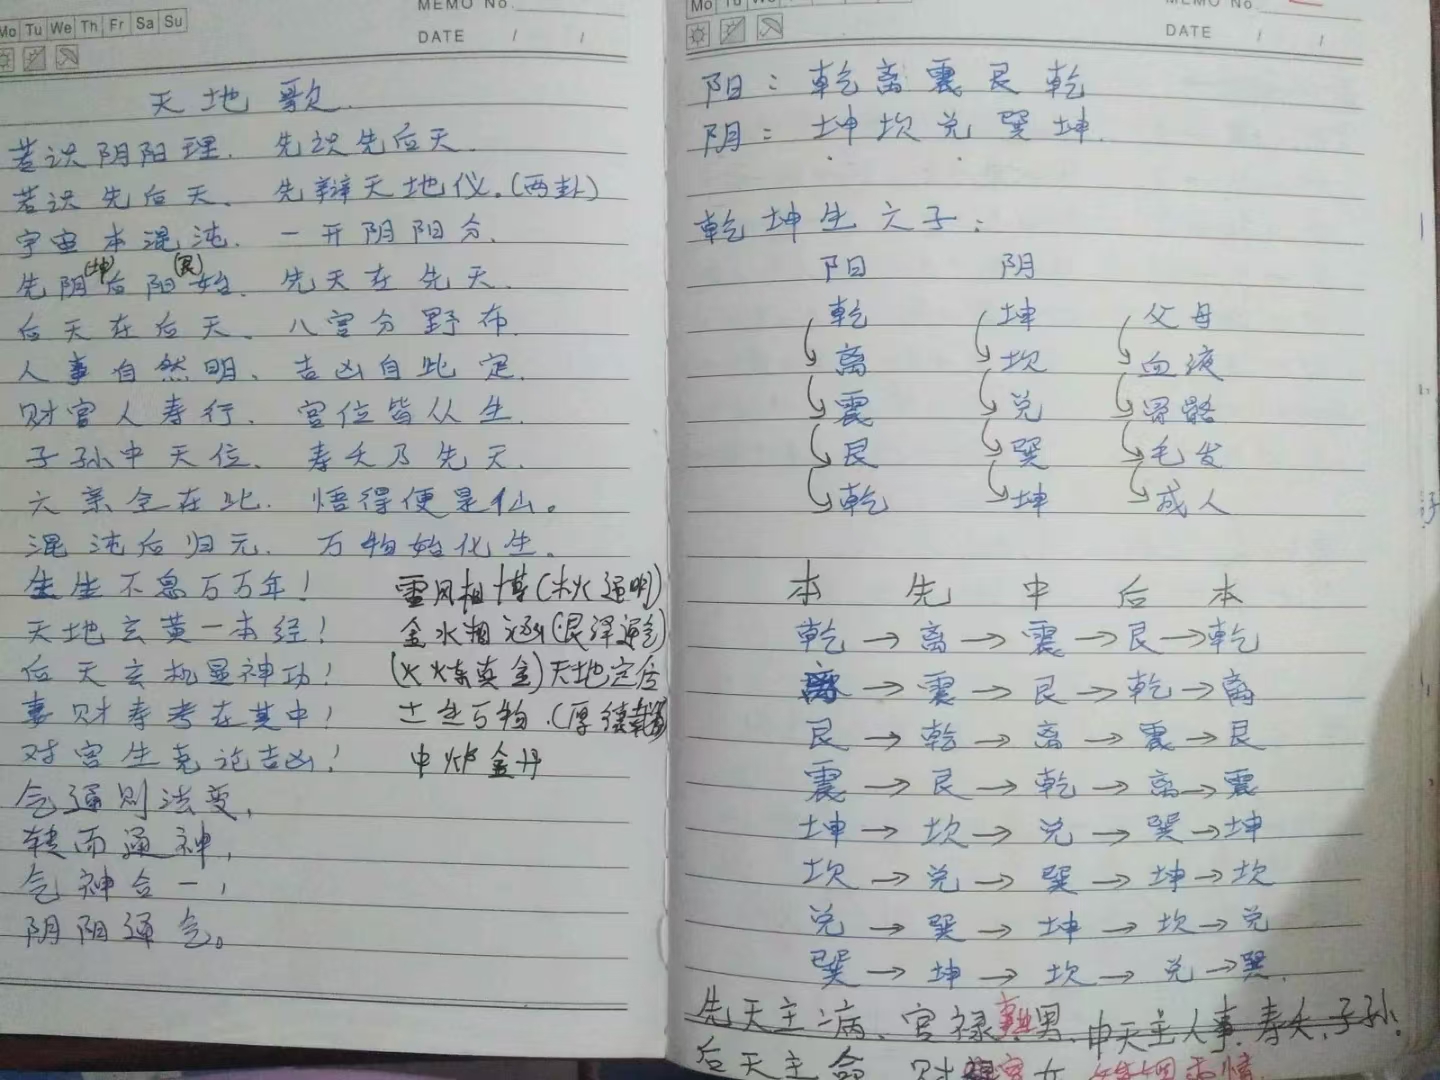 MEMO No.
Mo Tu We Th Fr Sa Su
DATE / /
天地歌
若识阴阳理、先识先后天、
若识先后天、先辩天地仪。(两卦)
宇宙本混沌、一开阴阳分、
(坤) (艮)
先阴后阳始、先天在先天、
后天在后天、八宫分野布、
人事自然明、吉凶自此定、
财官人寿行、宫位皆从生
子孙中天位、寿夭乃先天、
六亲全在此、悟得便是仙。
混沌后归元、万物始化生。
生生不息万万年! 雷风相博(木火通明)
天地玄黄一本经! 金水相涵(艮泽通乾)
后天玄机显神功! (火炼真金)天地定位
妻财寿考在其中! 土生万物.(厚德载物)
对宫生克论吉凶! 中炉金丹
气通则法变,
转而通神,
气神合一,
阴阳通气。
MEMO No.
Mo Tu We Th Fr Sa Su
DATE / /
阳:乾离震艮乾
阴:坤坎兑巽坤
乾坤生六子:
阳 阴
乾 坤 父母
离 坎 血液
震 兑 骨骼
艮 巽 毛发
乾 坤 成人
本 先 中 后 本
乾→离→震→艮→乾
离→震→艮→乾→离
艮→乾→离→震→艮
震→艮→乾→离→震
坤→坎→兑→巽→坤
坎→兑→巽→坤→坎
兑→巽→坤→坎→兑
巽→坤→坎→兑→巽
先天主病、官禄 男、中天主人事、寿夭、子孙.
后天主命 财 女